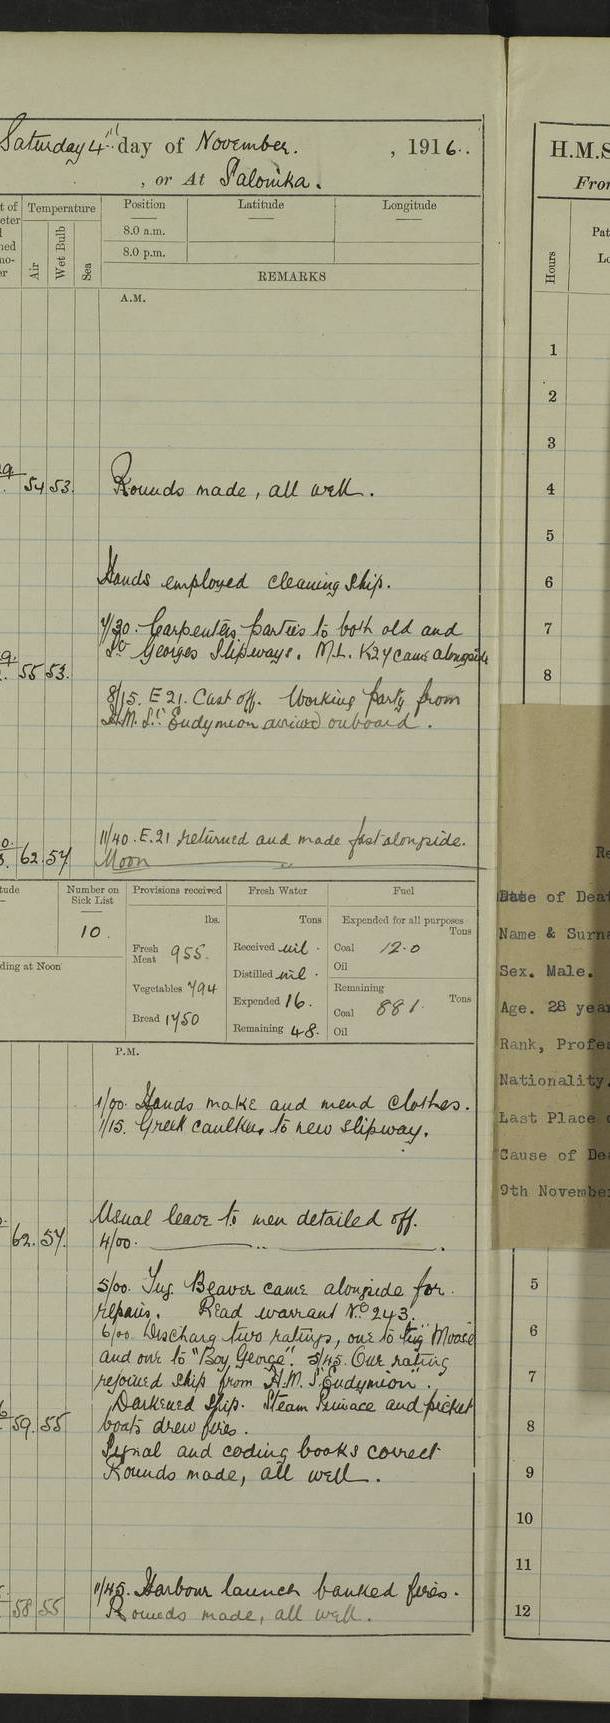 Saturday 4th day of November. , 1916.
, or At Salonika.
Temperature
Position
Latitude
Longitude
Air
Wet Bulb
Sea
8.0 a.m.
8.0 p.m.
REMARKS
A.M.
54 53. Rounds made, all well.
Hands employed cleaning ship.
7/30. Carpenters parties to both old and
St Georges Slipways. M.L. K24 came alongside
55 53.
8/15. E 21. Cast off. Working party from
H.M.S. "Endymion arrived onboard.
11/40. E.21 returned and made fast alongside.
62. 57. Noon
Number on Sick List
10.
Provisions received
lbs.
Fresh Meat 955.
Vegetables 794
Bread 1750
Fresh Water
Tons
Received nil.
Distilled nil.
Expended 16.
Remaining 48.
Fuel
Expended for all purposes
Tons
Coal 12.0
Oil
Remaining
Tons
Coal 881.
Oil
ding at Noon
P.M.
1/00. Hands make and mend clothes.
1/15. Greek caulkers to new slipway.
Usual leave to men detailed off.
62. 57. 4/00.
5/00. Tug Beaver came alongside for
repairs. Read warrant No. 243.
6/00 Discharg two ratings, one to tug "Moose"
and one to "Boy George". 5/45. Our rating
rejoined ship from H.M.S "Endymion".
Darkened ship. Steam Pinnace and picket
59. 55 boats drew fires.
Signal and coding books correct
Rounds made, all well.
11/45. Harbour launch banked fires.
58 55 Rounds made, all well.
H.M.S
From
Hours
1
2
3
4
5
6
7
8
Date of Deat
Name & Surna
Sex. Male.
Age. 28 year
Rank, Profes
Nationality.
Last Place o
Cause of Dea
9th November
5
6
7
8
9
10
11
12